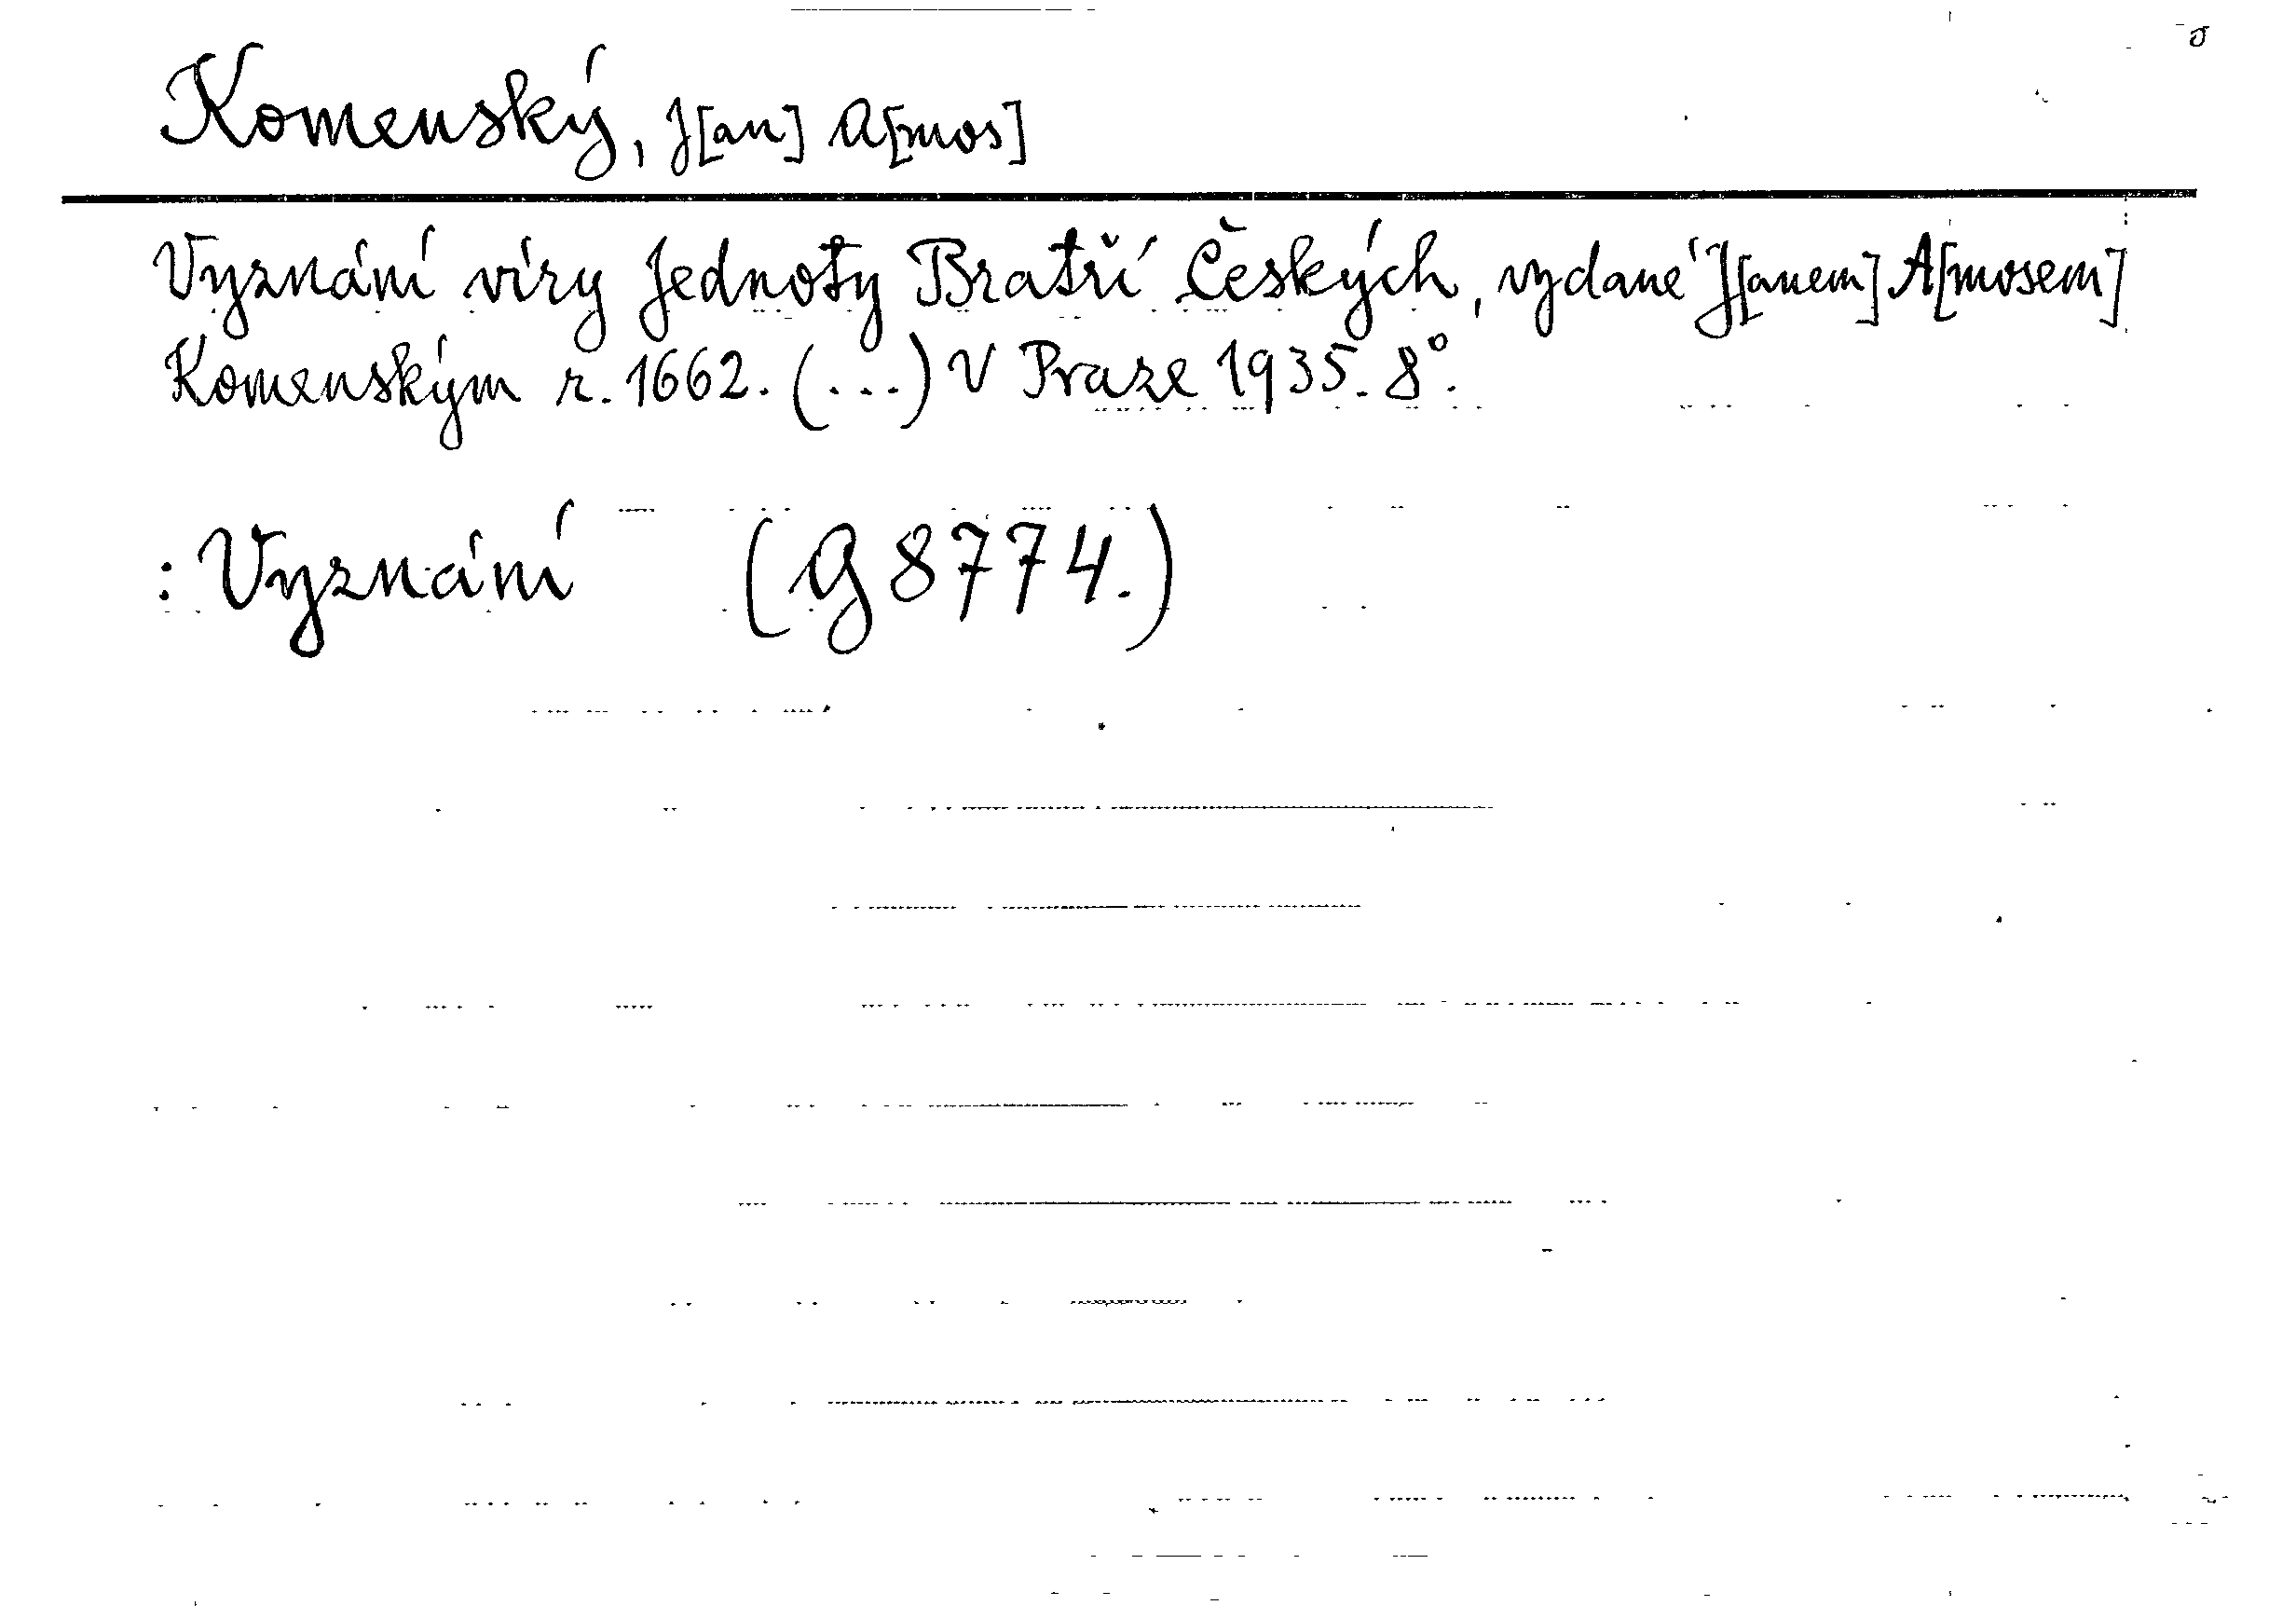 Komenský, J[an] A[mos]
Vyznání víry Jednoty Bratří Českých, vydané J[anem] A[mosem]
Komenským r. 1662. (...) V Praze 1935. 8°.
: Vyznání (G 8774.)